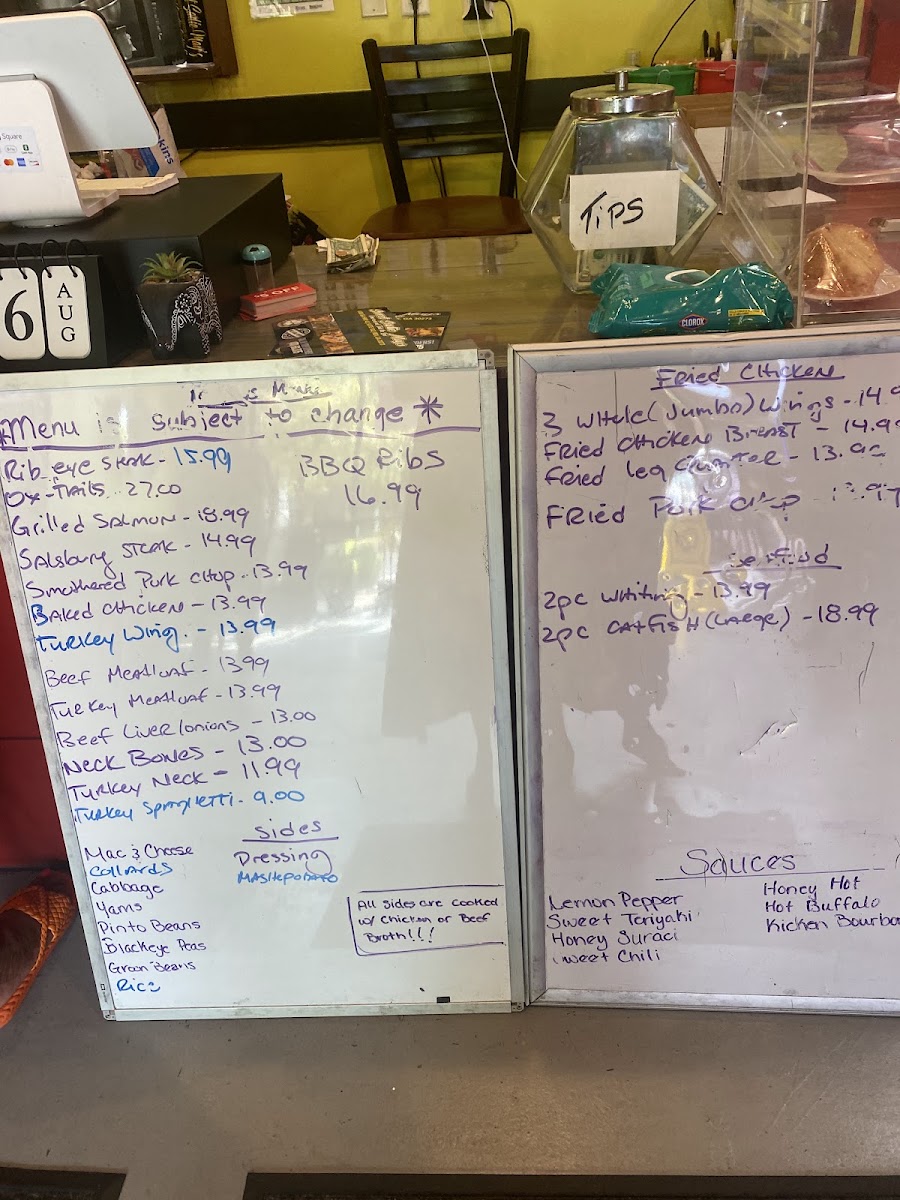 Square
6
AUG
TiPS
$ OFF
CLOROX
Menu is subject to change *
Rib eye steak - 15.99
Ox-Tails .. 27.00
Grilled Salmon - 18.99
Salsbury steak - 14.99
Smothered Pork Chop .. 13.99
Baked Chicken - 13.99
Turkey Wing. - 13.99
Beef Meatloaf - 1399
Turkey Meatloaf - 13.99
Beef Liver/onions - 13.00
Neck Bones - 13.00
Turkey Neck - 11.99
Turkey Spaghetti - 9.00
BBQ Ribs
16.99
Sides
Mac & Cheese
Collards
Cabbage
Yams
Pinto Beans
Blackeye Peas
Green Beans
Rice
Dressing
MASHEPOTATO
All sides are cooked
w/ Chicken or Beef
Broth!!!
Fried Chicken
3 Whole (Jumbo) Wings - 14.9
Fried Chicken Breast - 14.99
Fried Leg Quarter - 13.99
Fried Pork Chop
Seafood
2pc Whiting - 13.99
2pc CATFISH (Large) - 18.99
Sauces
Lemon Pepper
Sweet Teriyaki
Honey Suraci
Sweet Chili
Honey Hot
Hot Buffalo
Kicken Bourbo